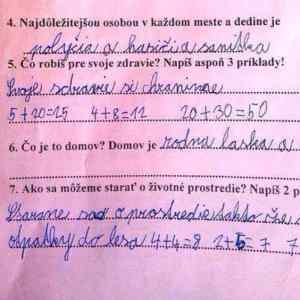 4. Najdôležitejšou osobou v každom meste a dedine je
polycia a hasiči a sanitka
5. Čo robíš pre svoje zdravie? Napíš aspoň 3 príklady!
Svoje zdravie si chranime
5+20=25 4+8=12 20+30=50
6. Čo je to domov? Domov je rodna laska a
7. Ako sa môžeme starať o životné prostredie? Napíš 2 p
Starame sa o prostredie takto že
odpadky do lesa 4+4=8 2+5=7 7